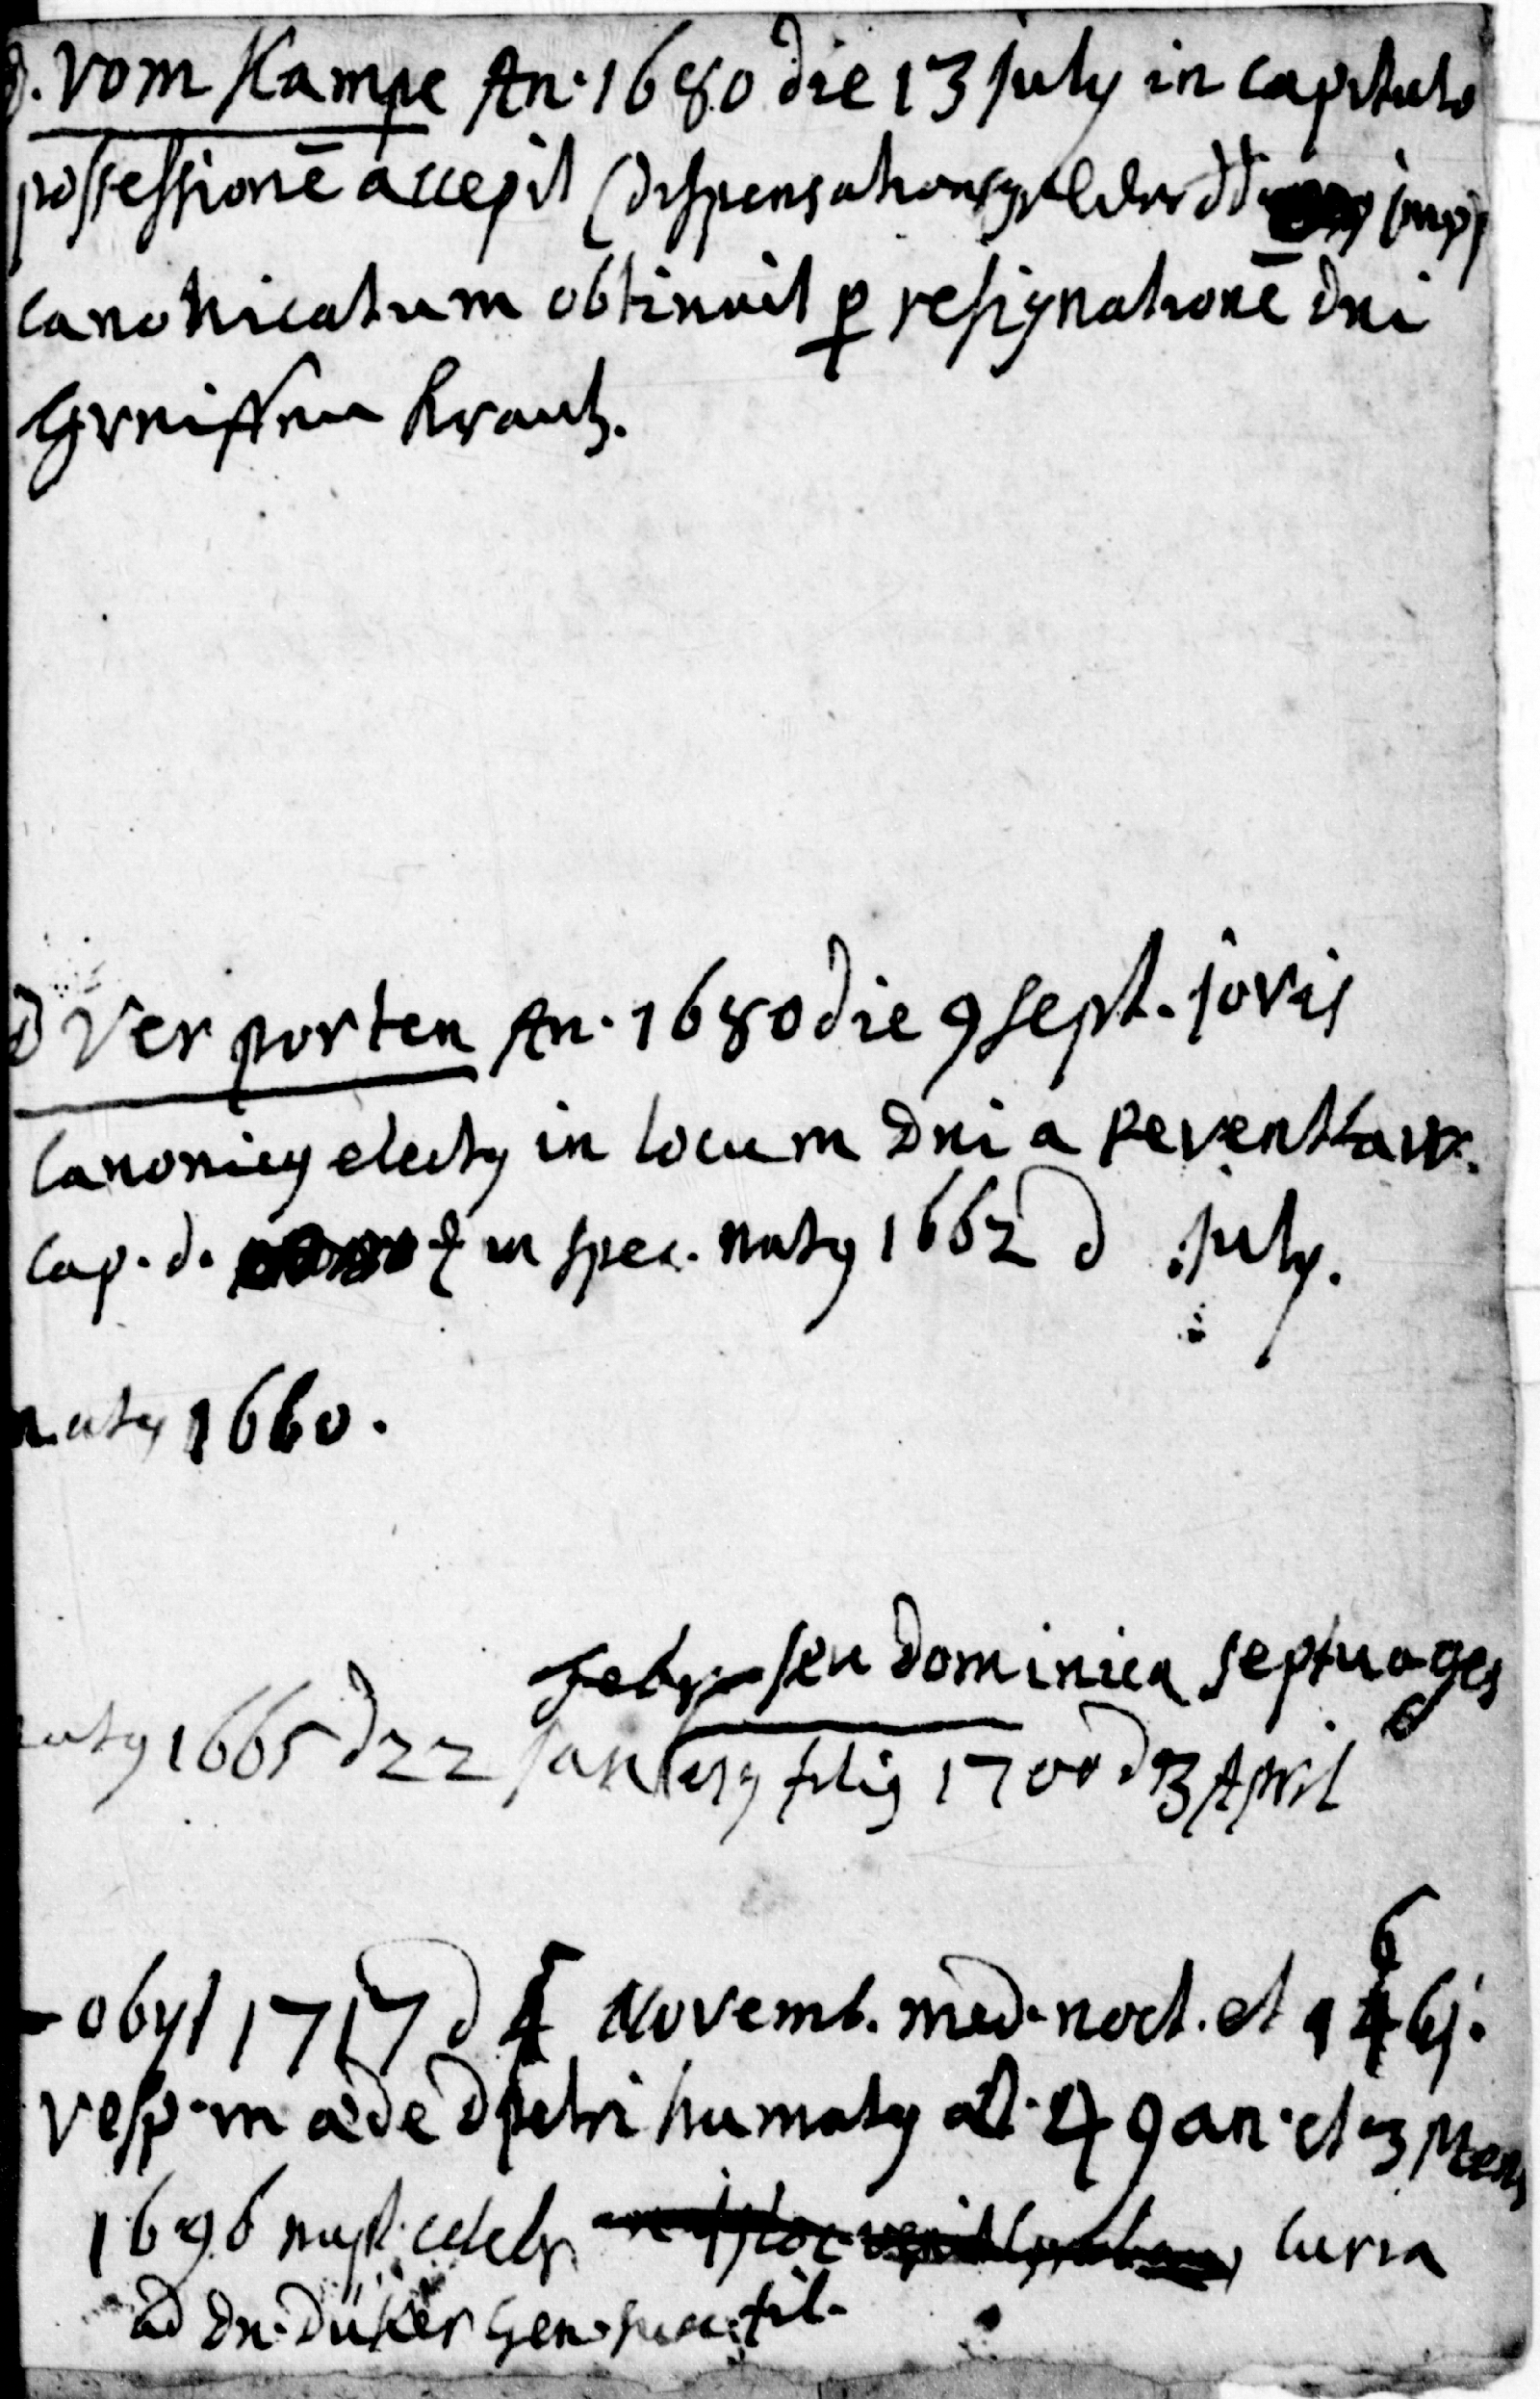 D. vom Kampe An. 1680 die 13 july in capitulo
possessionē accepit (dispensationsgelder dd
canonicatum obtinuit p resignationē dni
Greiffen Krantz.
D Ver porten An. 1680 die 9 sept. jovis
Canonicus electus in locum Dni a Reventlaw.
cap. d. in spec. natus 1662 d july.
natus 1660.
Febr seu dominica septuages
natus 1665 d 22 January filius 1700 d 13 April
6
- obyt 1717 d 4 Novemb. med. noct. et 14 ej.
vesp. in æde D petri humatus æt. 49 an. et 3 Mens
1696 nupt. celebr curia
ad Dn. Düker fil.